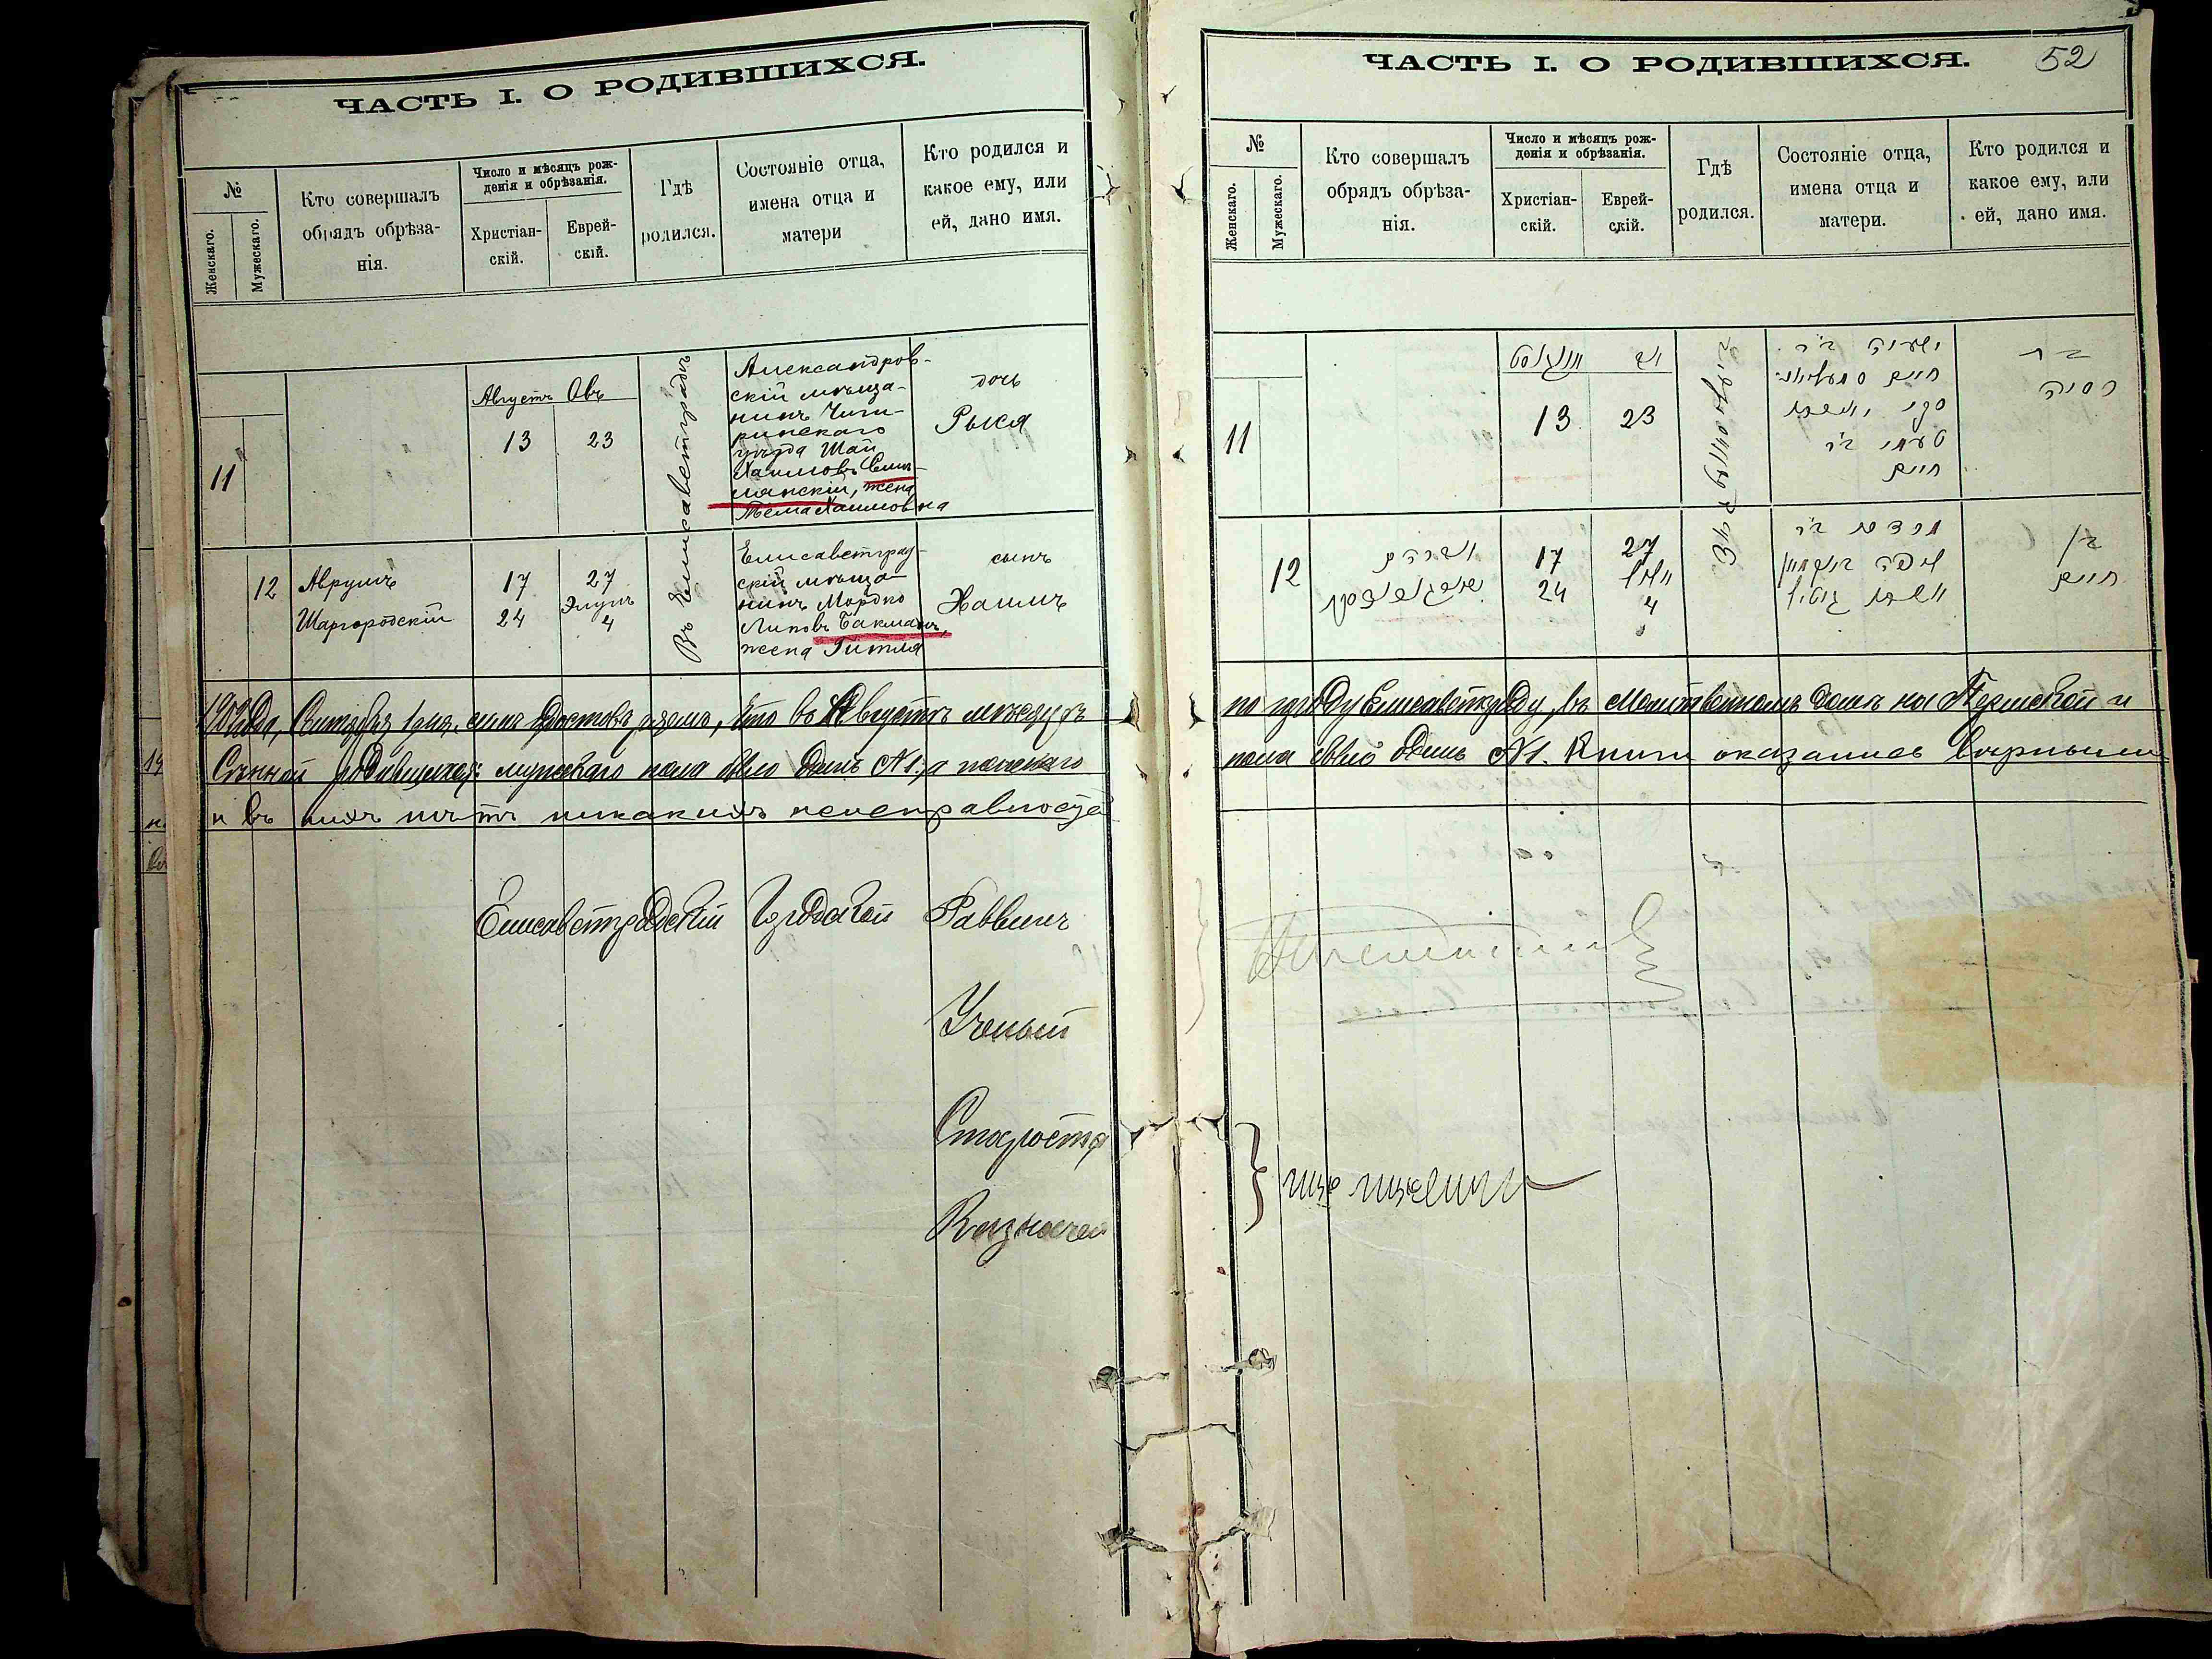 ЧАСТЬ I. О РОДИВШИХСЯ.
№
Женскаго.
Мужескаго.
Кто совершалъ
обрядъ обрѣза-
нія.
Число и мѣсяцъ рож-
денія и обрѣзанія.
Христіан-
скій.
Еврей-
скій.
Гдѣ
родился.
Состояніе отца,
имена отца и
матери
Кто родился и
какое ему, или
ей, дано имя.
11
Августъ Овъ
13 23
Въ Елисаветградѣ
Александров-
скій мѣща-
нинъ Чиги-
ринскаго
уѣзда Шая
Хаимовъ
жена
Тема Хаимовна
дочь
Рыся
12
Аврумъ
Шаргородскій
17
24
27
Элулъ
4
Елисаветград-
скій мѣща-
нинъ Мордко
Липовъ Бакманъ,
жена Гитля
сынъ
Хаимъ
года, Сентября 1 дня, что въ Августѣ мѣсяцѣ
Сѣнной родившихся: мужескаго пола было одинъ №1, а женскаго
и въ нихъ нѣтъ никакихъ неисправностей
Елисаветградскій Городской Раввинъ
Ученый
Староста
Казначей
ЧАСТЬ I. О РОДИВШИХСЯ.
52
№
Женскаго.
Мужескаго.
Кто совершалъ
обрядъ обрѣза-
нія.
Число и мѣсяцъ рож-
денія и обрѣзанія.
Христіан-
скій.
Еврей-
скій.
Гдѣ
родился.
Состояніе отца,
имена отца и
матери.
Кто родился и
какое ему, или
ей, дано имя.
11
אויגוסט אב
13 23
ישעיה ב״ר
חיים
ב״ר
חיים
בת
רסיה
12
אברהם
17
24
27
אלול
4
מרדכי ב״ר
ליפה באקמאן
בן
חיים
по городу Елисаветграду, въ Молитвенномъ домѣ на Пермской и
пола было одинъ №1. Книги оказались вѣрными